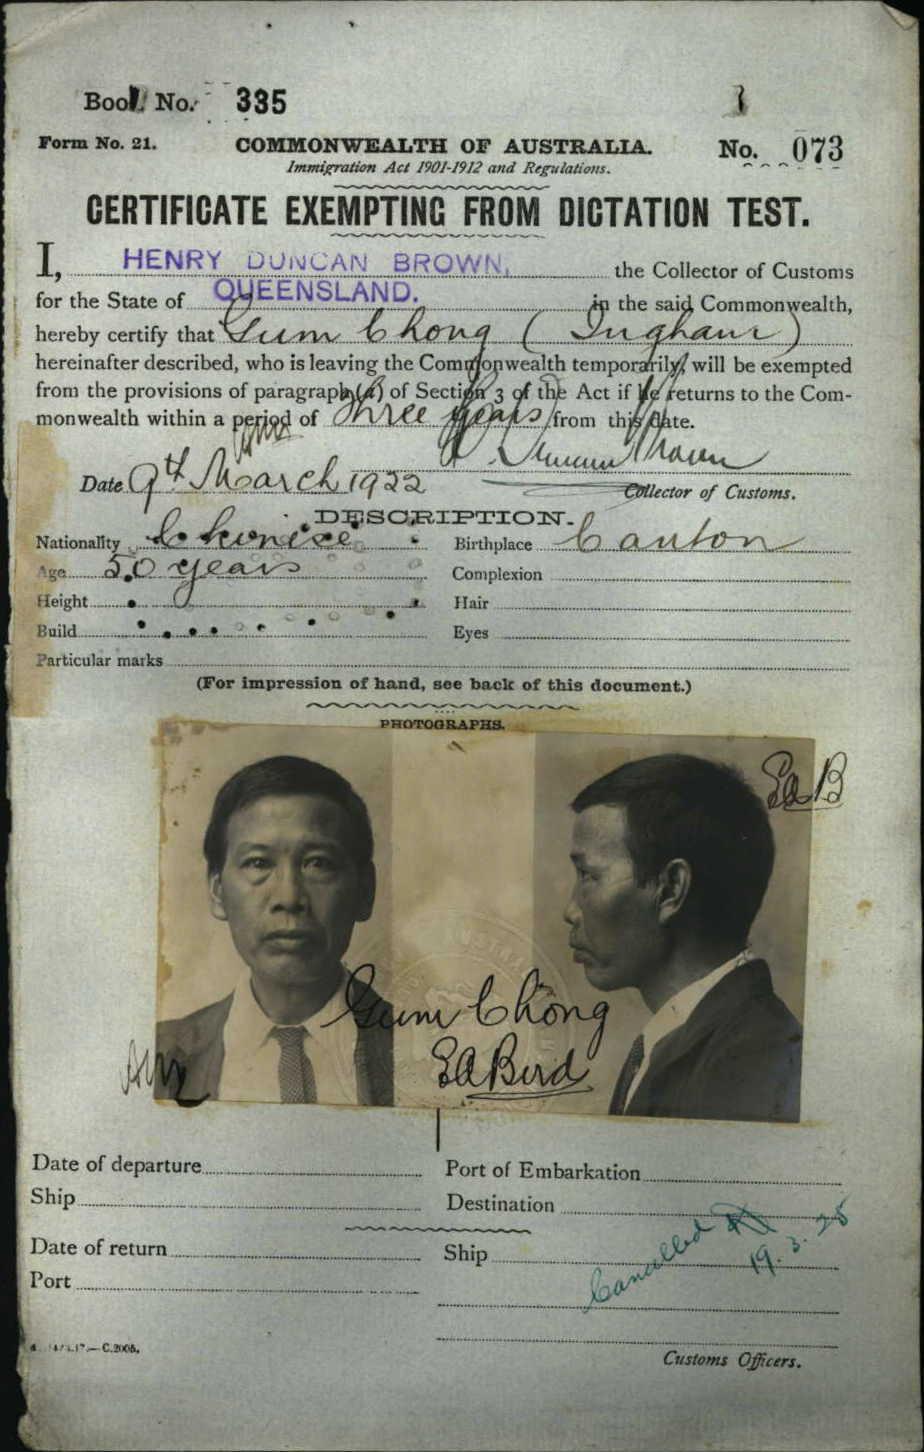 Book No. 335
Form No. 21. COMMONWEALTH OF AUSTRALIA. No. 073
Immigration Act 1901-1912 and Regulations.
CERTIFICATE EXEMPTING FROM DICTATION TEST.
I, HENRY DUNCAN BROWN, the Collector of Customs
for the State of QUEENSLAND. in the said Commonwealth,
hereby certify that Gum Chong (Ingham)
hereinafter described, who is leaving the Commonwealth temporarily, will be exempted
from the provisions of paragraph (a) of Section 3 of the Act if he returns to the Com-
monwealth within a period of three years from this date.
Date 9th March 1922
Collector of Customs.
DESCRIPTION.
Nationality Chinese Birthplace Canton
Age 50 years Complexion
Height Hair
Build Eyes
Particular marks
(For impression of hand, see back of this document.)
PHOTOGRAPHS.
EaB
Gum Chong
EA Bird
Date of departure Port of Embarkation
Ship Destination
Date of return Ship
Port
Cancelled 19.3.25
C.2005.
Customs Officers.